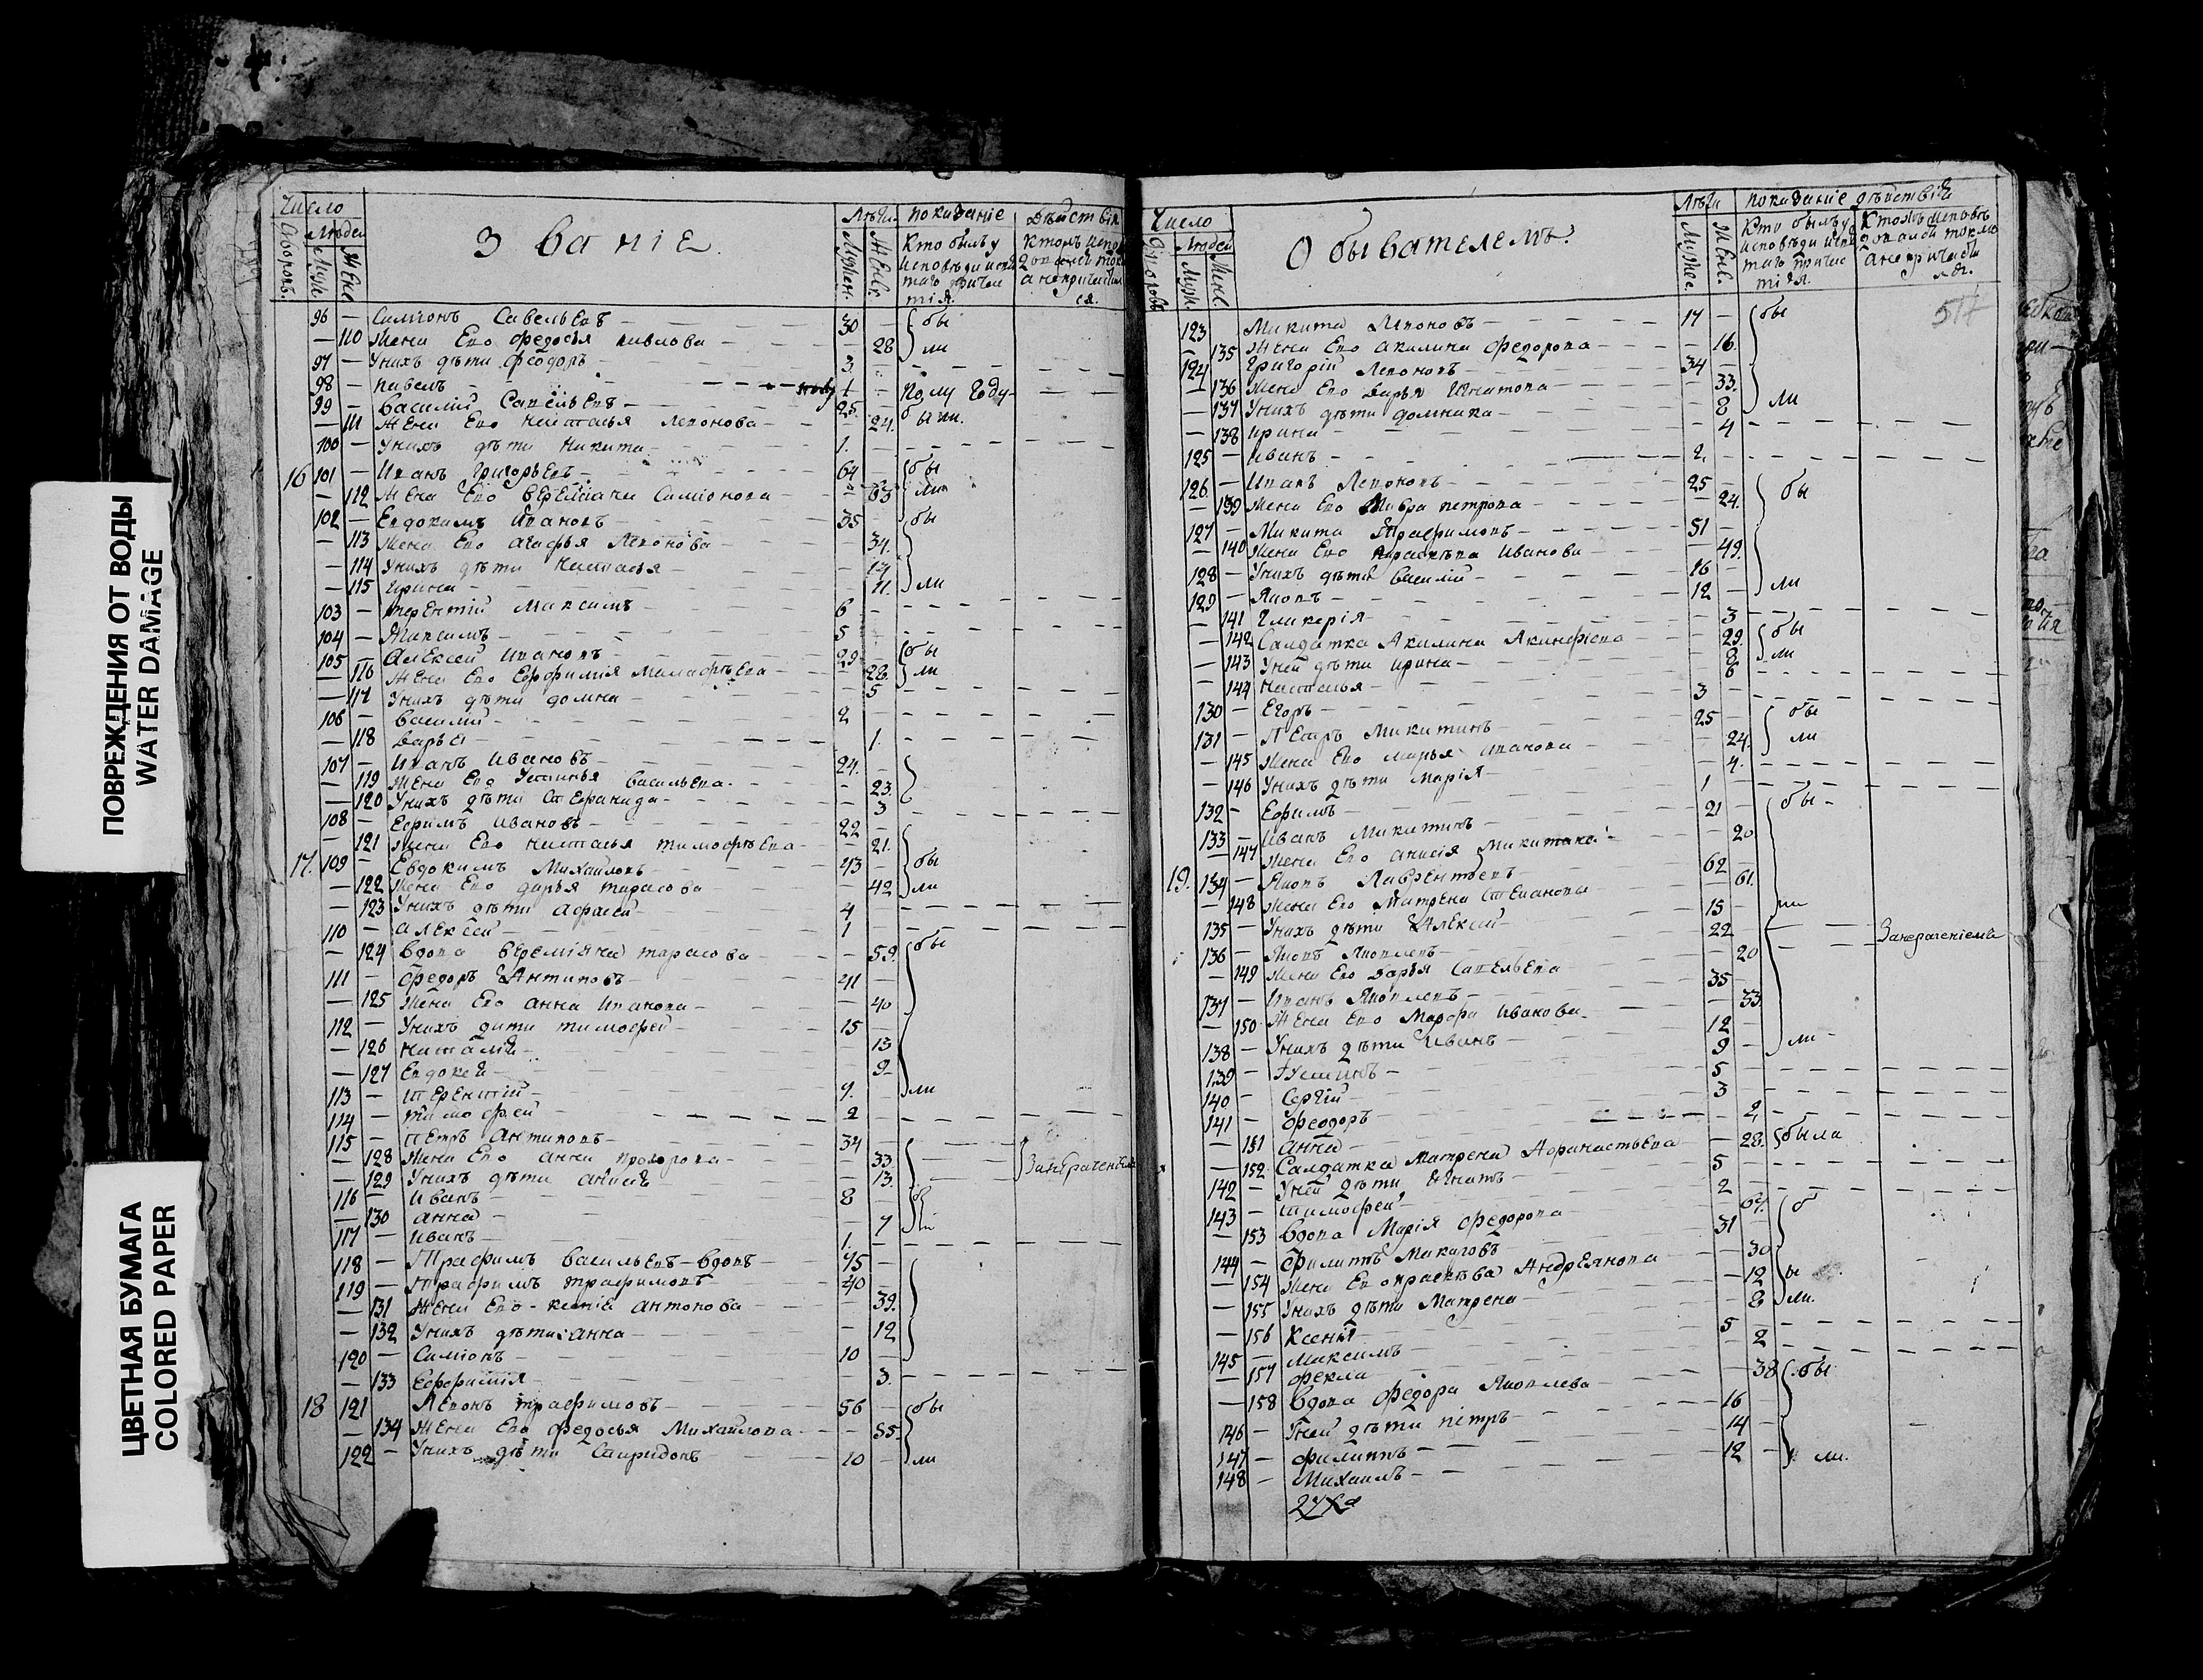 ПОВРЕЖДЕНИЯ ОТ ВОДЫ
WATER DAMAGE
ЦВЕТНАЯ БУМАГА
COLORED PAPER
Число
Людей
Званіе.
Лѣта
показаніе
дѣйствія
96 — Симіонъ Савельевъ — 30 — бы
— 110 Жена Его Федосья павлова — 28 ли
97 — Унихъ дѣти Феодоръ — 3
98 — павелъ — 1 — полу году
99 — Василій Савельевъ — 25
— 111 Жена Его Настасья Леонова — 24. были.
100 — Унихъ дѣти Никита — 1.
16 101 — Иванъ Григорьевъ — 64 — бы
— 112 Жена Его Симіонова — 63 ли
102 — Евдокимъ Ивановъ — 35 — бы
— 113 Жена Его агафья Леонова — 34.
— 114 Унихъ дѣти Настасья —
— 115 Ирина — 11. ли
103 — терентій Максимъ — 6 —
104 — Максимъ — 5
105 — Алексей Ивановъ — 29 — бы
— 116 Жена Его Ефимія — 28. ли
— 117 Унихъ дѣти домна — 5
106 — Василій — 2
— 118 дарья — 1.
107 — Иванъ Ивановъ — 24.
— 119 Жена Его Устинья Васильева — 23.
— 120 Унихъ дѣти Стефанида — 3
108 — Ефимъ Ивановъ — 22 —
— 121 Жена Его Настасья тимофѣева — 21.
17. 109 — Евдокимъ Михайловъ — 43 — бы
— 122 Жена Его дарья тарасова — 42 ли
— 123 Унихъ дѣти — 4
110 — алексей — 1
— 124 Вдова тарасова — 59. бы
111 — Федоръ Антиповъ — 41 —
— 125 Жена Его анна Иванова — 40
112 — Унихъ дѣти тимофей — 15 —
— 126 Наталія — 13
— 127 Евдокея — 9
113 — терентій — 7. — ли
114 — тимофей — 2
115 — петръ Антиповъ — 34 —
— 128 Жена Его анна прохорова — 33.
— 129 Унихъ дѣти анисія — 13.
116 — Иванъ — 8
— 130 анна — 7
117 — Иванъ — 1.
118 — Трафимъ Васильевъ — Вдовъ — 75 —
119 — Трафимъ трафимовъ — 40 —
— 131 Жена Его — ксенія антонова — 39.
— 132 Унихъ дѣти: анна — 12
120 — Симіонъ — 10 —
— 133 Ефимія — 3.
18 121 Леонъ трафимовъ — 56 — бы
— 134 Жена Его Федосья Михайлова — 55.
122 — Унихъ дѣти Спиридонъ — 10 — ли
Число
Людей
Обывателемъ.
Лѣта
показаніе дѣйствія
123 Микита Леоновъ — 17 — бы
— 135 Жена Его акилина Федорова — 16.
124 Григорій Леоновъ — 34 —
— 136 Жена Его дарья Игнатова — 33.
— 137 Унихъ дѣти домника — 8 ли
— 138 ирина — 4
125 — иванъ — 2.
126 — Иванъ Леоновъ — 25 — бы
— 139 Жена Его Мавра петрова — 24.
127 — Микита Трафимовъ — 51 —
— 140 Жена Его параскѣва Иванова — 49.
128 — Унихъ дѣти Василій — 16 —
129 — Яковъ — 12 — ли
— 141 Гликерія — 3
— 142 Салдатка Акилина Акинфіева — 29. бы
— 143 Уней дѣти ирина — 8 ли
— 144 Настасья — 6
130 — Егоръ — 3
131 — Петръ Микитинъ — 25 — бы
— 145 Жена Его Марья Иванова — 24. ли
— 146 Унихъ дѣти Марія — 4.
132 — Ефимъ — 1
133 — Иванъ Микитинъ — 21 — бы
— 147 Жена Его анисія — 20
19. 134 — Яковъ Лаврентьевъ — 62 —
— 148 Жена Его Матрена Степанова — 61.
135 — Унихъ дѣти Алексей — 15 — ли
136 — Яковъ Яковлевъ — 22
— 149 Жена Его дарья Савельева — 20
137 — Иванъ Яковлевъ — 35
— 150 Жена Его Марфа Иванова — 33
138 — Унихъ дѣти Иванъ — 12 —
139 — Устинъ — 9 — ли
140 — Сергій — 5
141 — Феодоръ — 3
— 151 анна — 2,
— 152 Салдатка Матрена Афанасьева — 28. была
142 — Уней дѣти Игнатъ — 5
143 — тимофей — 2
— 153 Вдова Марія Федорова — 67.
144 — Филиппъ — 31
— 154 Жена Его праскѣва Андреянова — 30 бы
— 155 Унихъ дѣти Матрена — 12
— 156 Ксенія — 8 ли.
145 — Максимъ — 5
— 157 Фекла — 2
— 158 Вдова Федора Яковлева — 38 бы
146 — Уней дѣти петръ — 16
147 — Филиппъ — 14
148 — Михаилъ — 12 — ли.